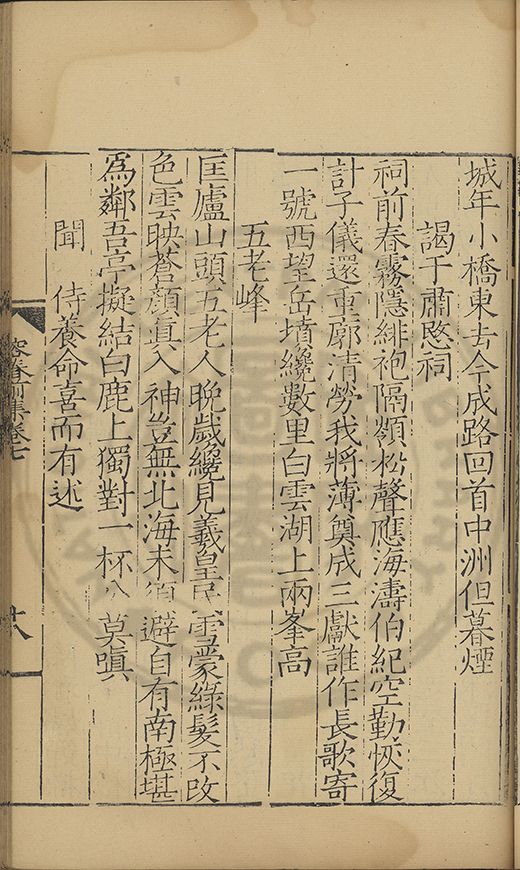 城年小橋東去今成路回首中洲但暮煙
謁于肅愍祠
祠前春霧隱緋袍隔嶺松聲應海濤伯紀空勤恢復
計子儀還重廓清勞我將薄奠成三獻誰作長歌寄
一號西望岳墳纔數里白雲湖上兩峯高
五老峰
匡廬山頭五老人晚歲纔見羲皇雪蒙綠髮不改
色雲映蒼顏眞入神豈無北海未避自有南極堪
爲鄰吾亭擬結白鹿上獨對一杯公莫嗔
聞 侍養命喜而有述
容春別集卷七
十八